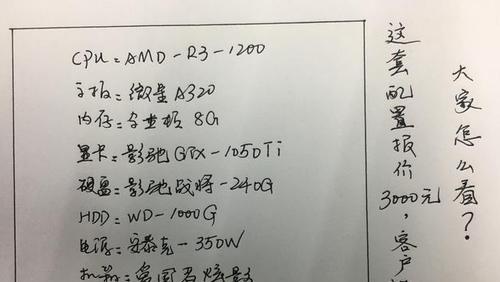 CPU = AMD - R3 - 1200
主板 = 微星 A320
内存 = 8G
显卡 = 影驰 GTX - 1050Ti
硬盘 = 影驰战将 - 240G
HDD = WD - 1000G
电源 = 安泰克 - 350W
机箱
大家怎么看?
这套配置报价3000元,客户